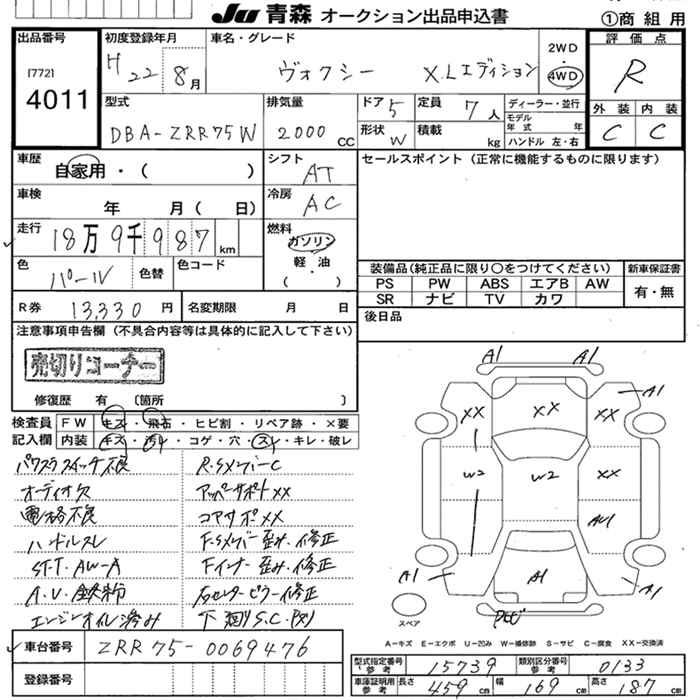 JU 青森 オークション出品申込書
①商組用
出品番号
[772]
4011
初度登録年月
H 22 8月
車名・グレード
ヴォクシー X.Lエディション
2WD
4WD
評価点
R
外装 内装
C C
型式
DBA-ZRR75W
排気量
2000 CC
ドア 5
形状 W
定員 7人
積載 kg
ディーラー・並行
モデル年式 年
ハンドル 左・右
車歴
自家用・( )
シフト
AT
セールスポイント (正常に機能するものに限ります)
車検
年 月( 日)
冷房
AC
走行
18万9千987km
燃料
ガソリン
軽・油
( )
色
パール
色替
色コード
装備品(純正品に限り○をつけてください)
新車保証書
PS PW ABS エアB AW
SR ナビ TV カワ
有・無
R券 13,330円
名変期限 月 日
後日品
注意事項申告欄(不具合内容等は具体的に記入して下さい)
売切りコーナー
修復歴 有 〔箇所 〕
検査員記入欄
FW キズ・飛石・ヒビ割・リペア跡・×要
内装 キズ・汚レ・コゲ・穴・スレ・キレ・破レ
パワスラスイッチ不良
オーディオ欠
電格不良
ハンドルスレ
ST.T.AW-A
A.V.鉄粉
エンジンオイル滲み
R.SメンバーC
アッパーサポートXX
コアサポXX
F.Sメンバー歪み.修正
Fインナー歪み.修正
右センターピラー修正
下廻りS.C.凹
A1 A1
XX XX XX A1
W2 W2 XX
AU1
A1 A1 A1
スペア
A-キズ E-エクボ U-凹み W-補修跡 S-サビ C-腐食 XX-交換済
車台番号 ZRR75-0069476
登録番号
型式指定番号参考 15739
類別区分番号参考 0133
車庫証明用参考 長さ 459cm 幅 169cm 高さ 187cm